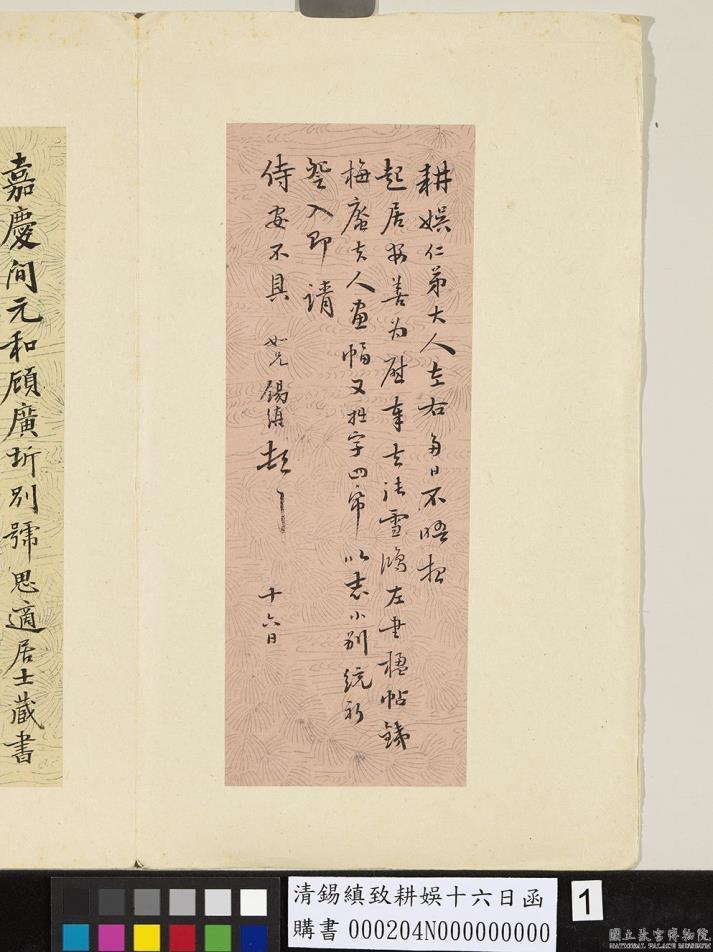 耕娛仁弟大人左右多日不晤想
起居安善為慰奉去張雪鴻左書楹帖錢
梅庵夫人畫幅又拙字四帋以志小別統祈
詧入即請
侍安不具 如兄錫縝頓
十六日
嘉慶間元和顧廣圻別號思適居士藏書
清錫縝致耕娛十六日函
購書 000204N000000000
1
國立故宮博物院
NATIONAL PALACE MUSEUM